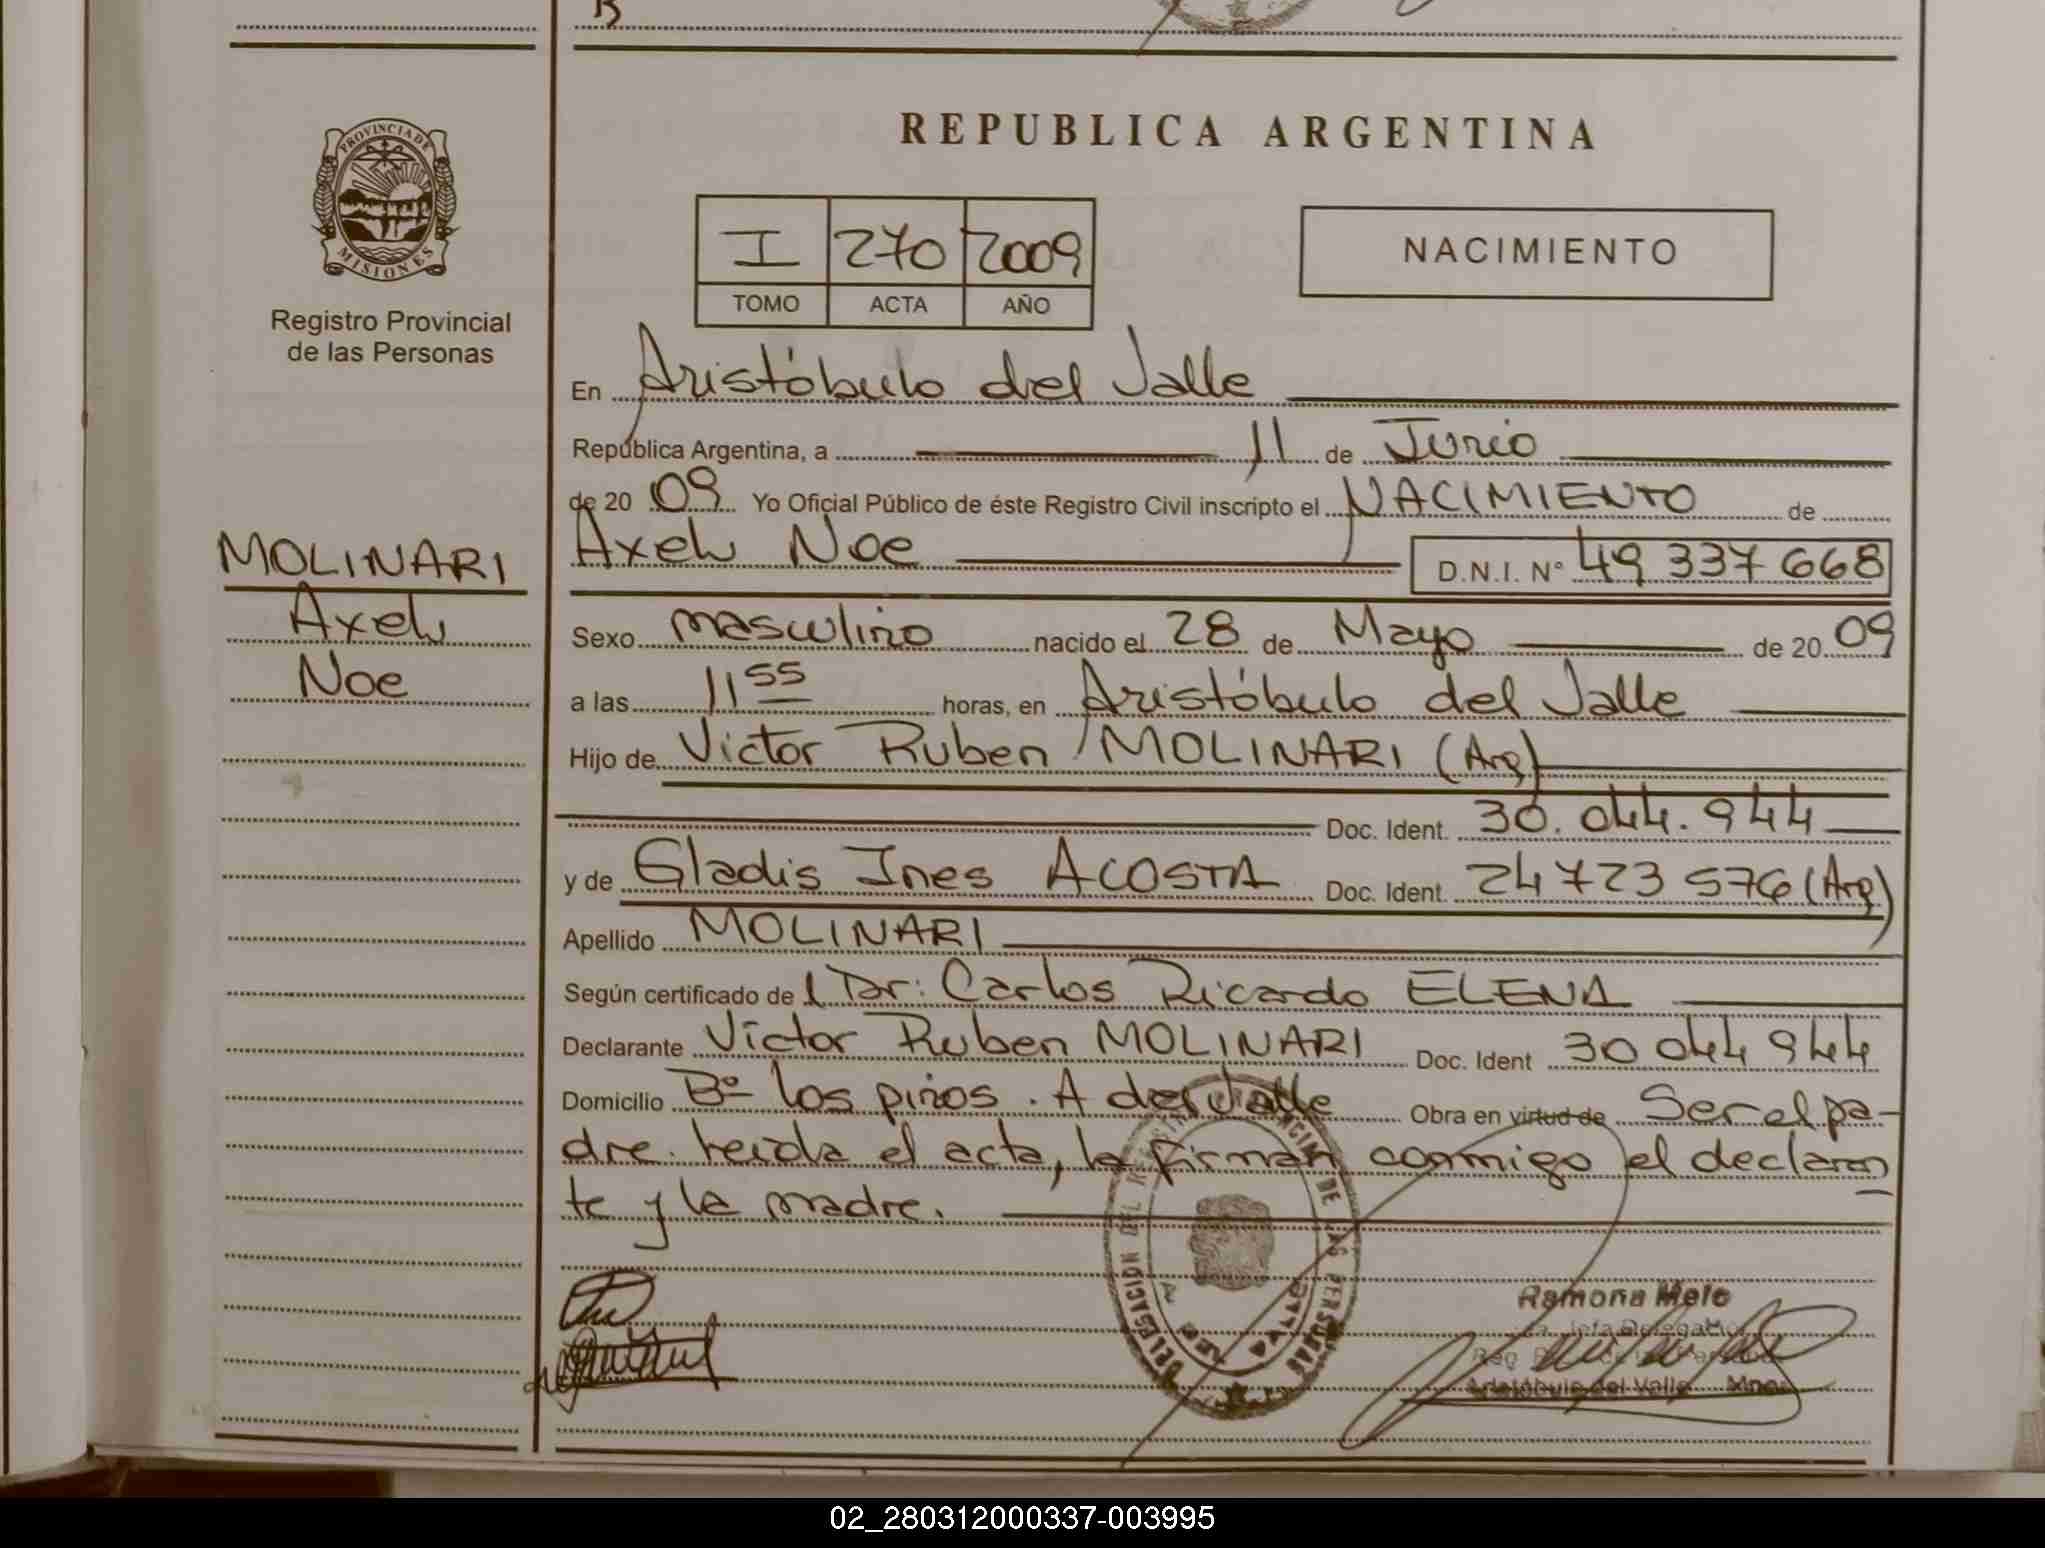 REPUBLICA ARGENTINA
PROVINCIA DE MISIONES
Registro Provincial
de las Personas
I 270 2009
TOMO ACTA AÑO
NACIMIENTO
En Aristóbulo del Valle
República Argentina, a 11 de Junio
de 20 09 Yo Oficial Público de éste Registro Civil inscripto el NACIMIENTO de
Axel Noe D.N.I. N° 49 337 668
MOLINARI
Axel
Noe
Sexo masculino nacido el 28 de Mayo de 20 09
a las 11 55 horas, en Aristóbulo del Valle
Hijo de Victor Ruben MOLINARI (Arg)
Doc. Ident. 30.044.944
y de Gladis Ines ACOSTA Doc. Ident. 24 723 576 (Arg)
Apellido MOLINARI
Según certificado de l Dr: Carlos Ricardo ELENA
Declarante Victor Ruben MOLINARI Doc. Ident 30 044 944
Domicilio Bº los pinos. A del Valle Obra en virtud de Ser el pa-
dre. leida el acta, la firman conmigo el declaran
te y la madre.
DELEGACION DEL REGISTRO PROVINCIAL DE LAS PERSONAS
Ramona Melo
Jefa Delegación
Aristóbulo del Valle Mnes
02_280312000337-003995